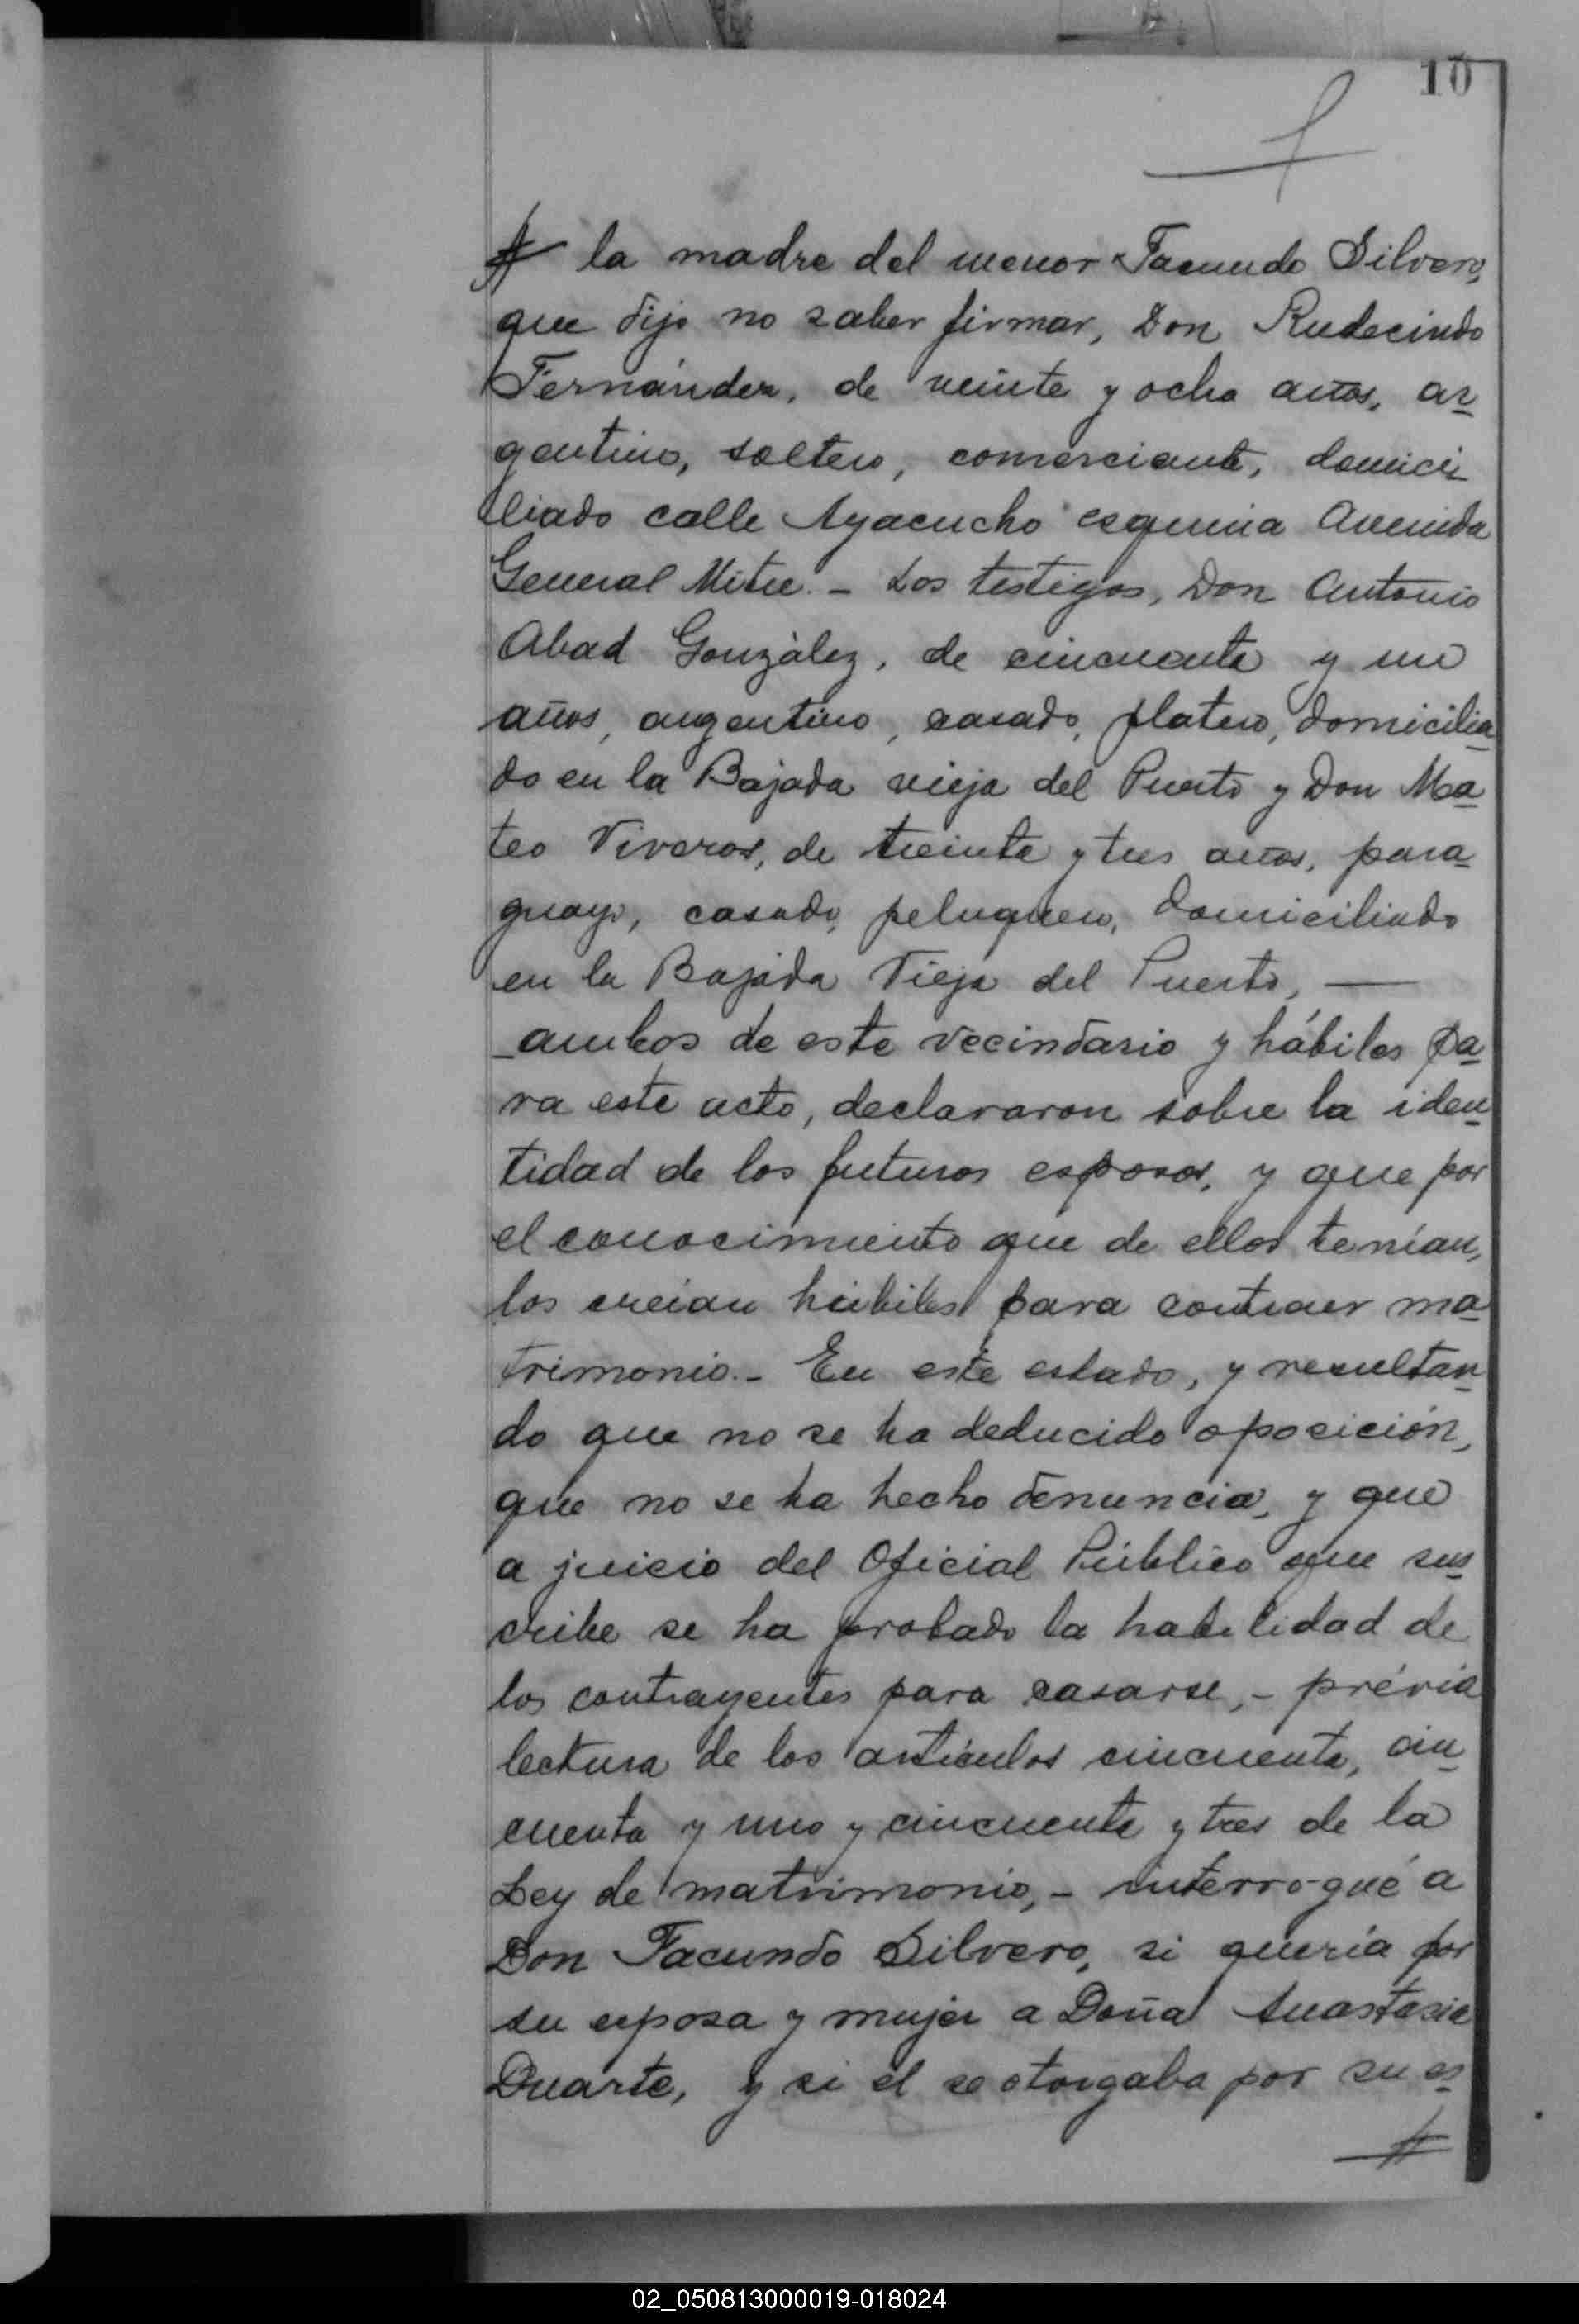 10
# la madre del menor Facundo Silvero,
que dijo no saber firmar, Don Rudecindo
Fernández, de veinte y ocho años, ar-
gentino, soltero, comerciante, domici-
liado calle Ayacucho esquina Avenida
General Mitre. - Los testigos, Don Antonio
Abad González, de cincuenta y un
años, argentino, casado, platero, domicilia-
do en la Bajada vieja del Puerto y Don Ma-
teo Viveros, de treinta y tres años, para-
guayo, casado, peluquero, domiciliado
en la Bajada Vieja del Puerto, —
_ambos de este vecindario y hábiles pa-
ra este acto, declararon sobre la iden-
tidad de los futuros esposos, y que por
el conocimiento que de ellos tenían,
los creían hábiles para contraer ma-
trimonio.- En este estado, y resultan-
do que no se ha deducido oposición,
que no se ha hecho denuncia, y que
a juicio del Oficial Público que sus-
cribe se ha probado la habilidad de
los contrayentes para casarse, - prévia
lectura de los artículos cincuenta, cin-
cuenta y uno y cincuenta y tres de la
Ley de matrimonio, - interrogué a
Don Facundo Silvero, si quería por
su esposa y mujer a Doña Anastasia
Duarte, y si él se otorgaba por su es-
#
02_050813000019-018024